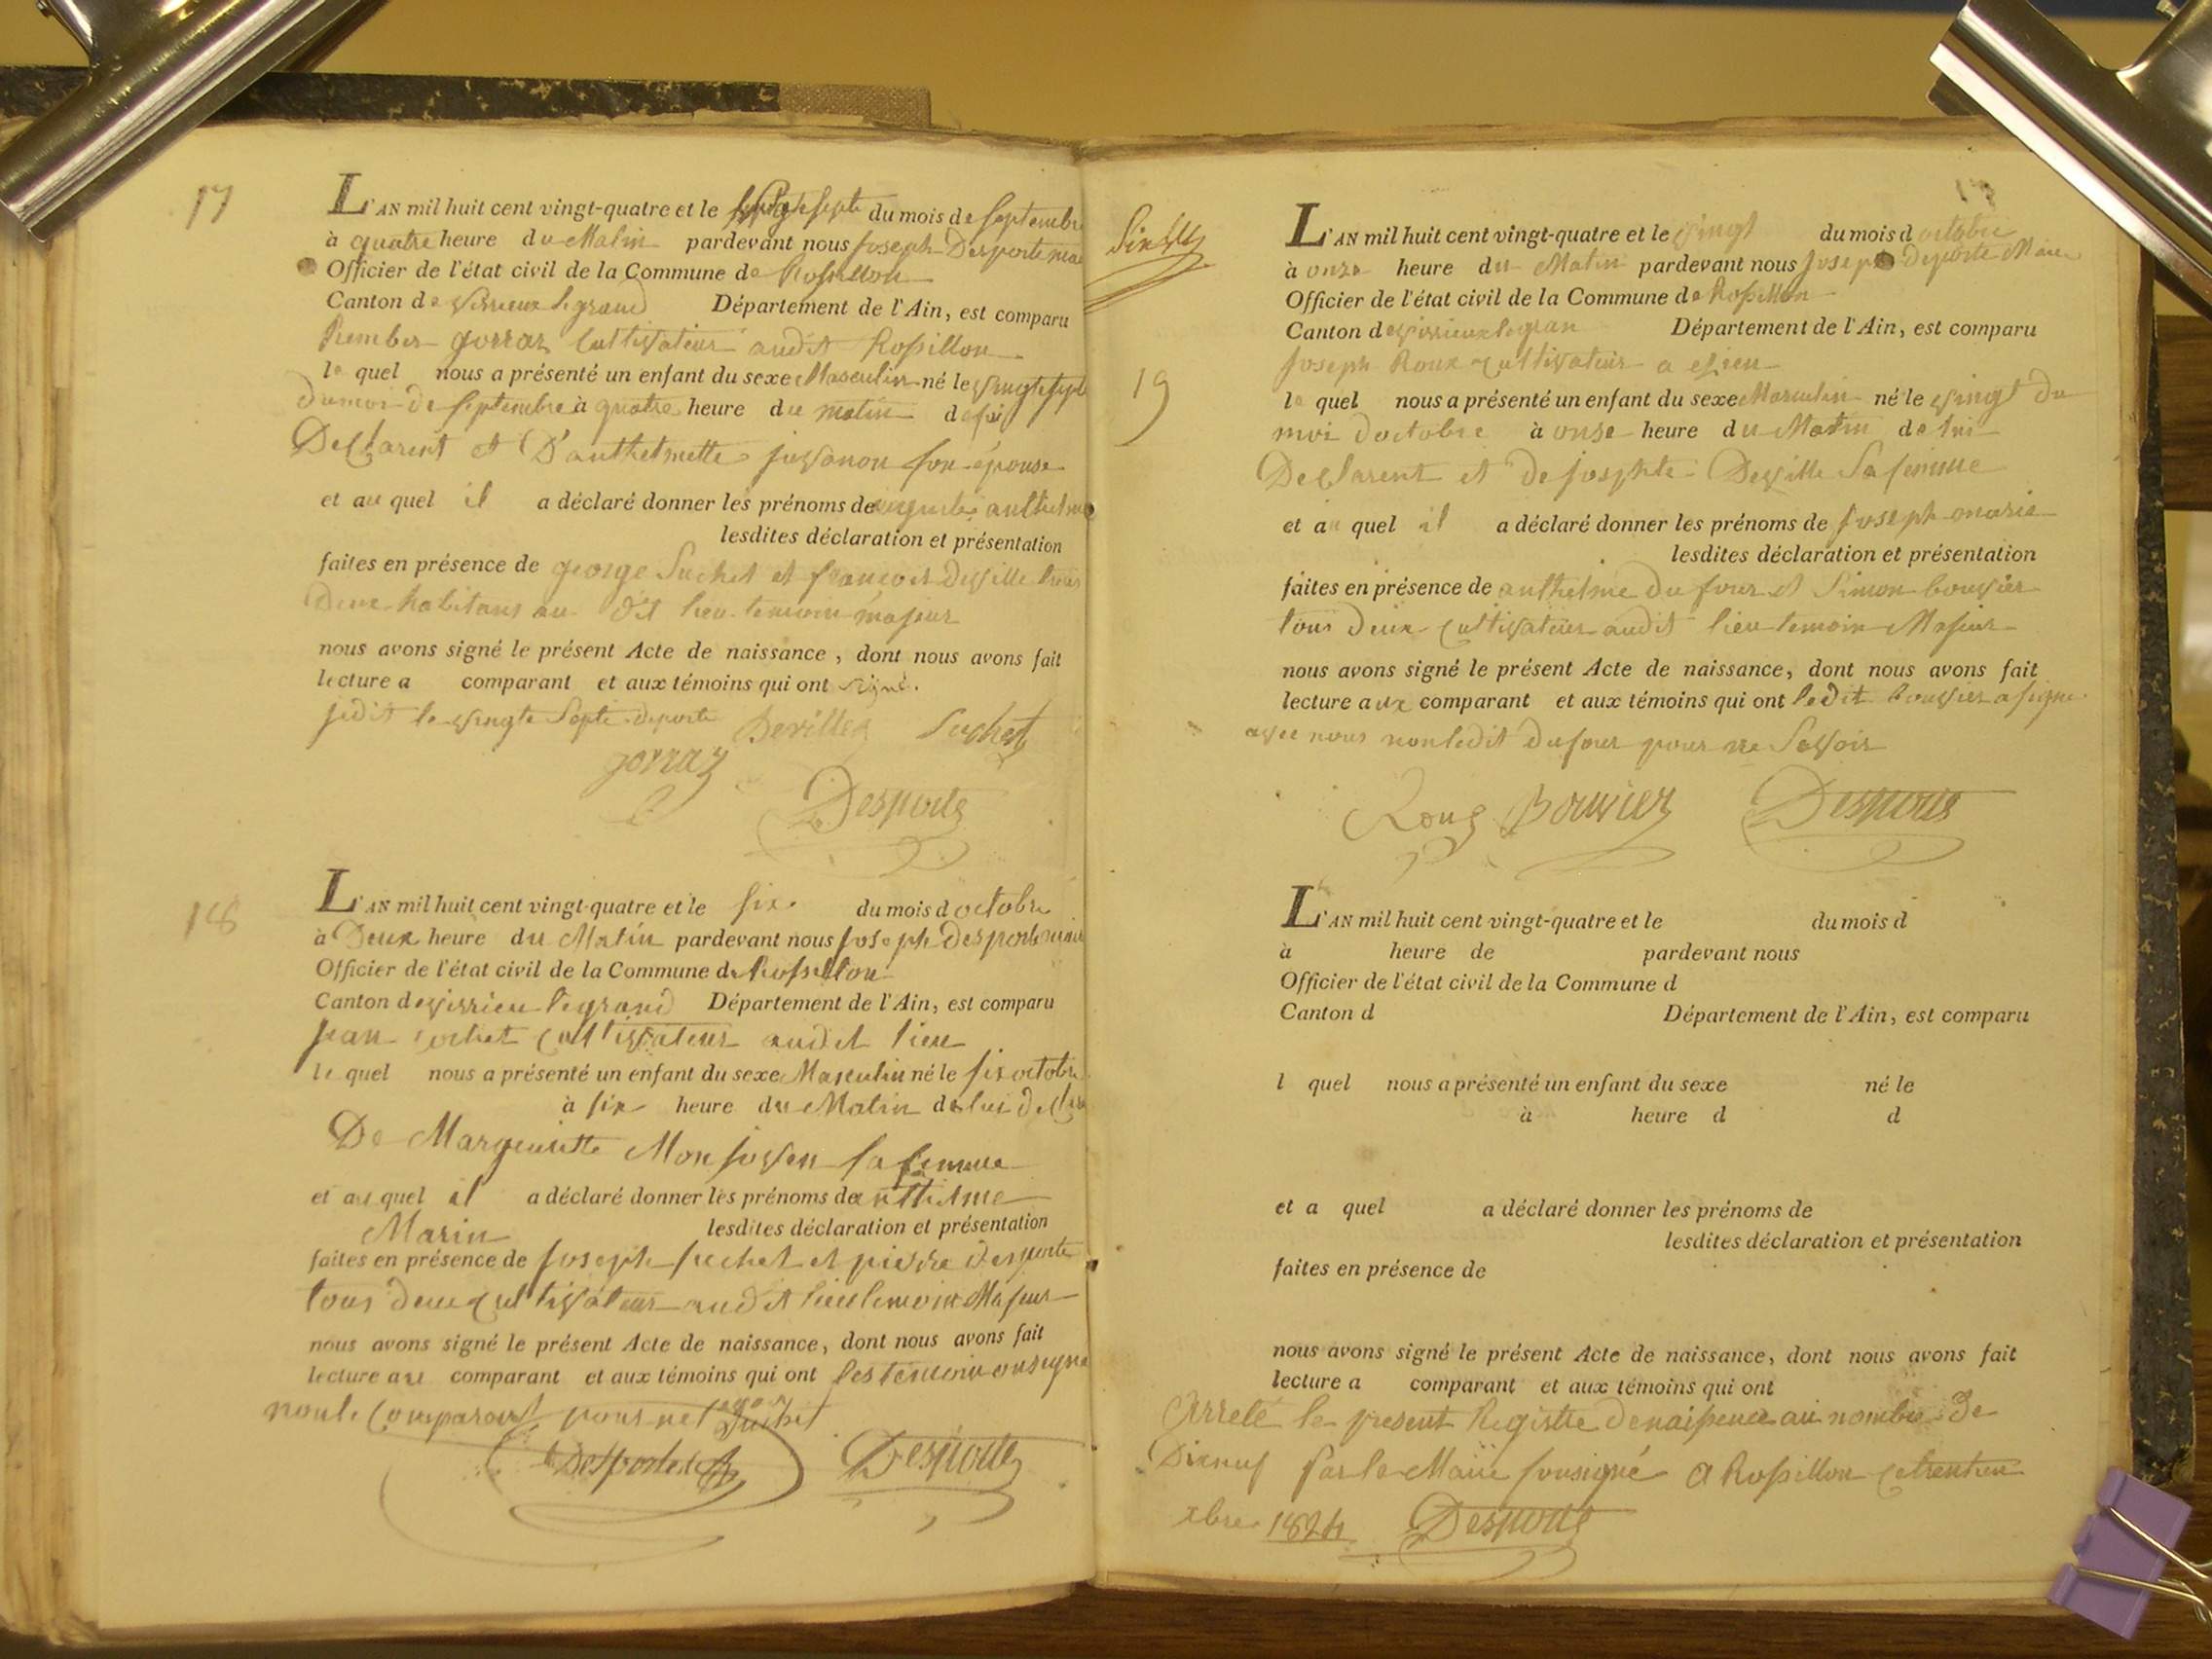 17
L'AN mil huit cent vingt-quatre et le septe du mois de septembre
à quatre heure du Matin pardevant nous joseph Desporte
Officier de l'état civil de la Commune de Rossillon
Canton de virieux le grand Département de l'Ain, est comparu
gorraz Cultivateur audit Rossillon
le quel nous a présenté un enfant du sexe Masculin né le vingtsept
du moi de septembre à quatre heure du matin de
Declarent et D'anthelmette juvanon son épouse
et au quel il a déclaré donner les prénoms de anthelme
lesdites déclaration et présentation
faites en présence de george Suchet et françois Deville tous
Deux habitans au dit lieu temoin majeur
nous avons signé le présent Acte de naissance, dont nous avons fait
lecture a comparant et aux témoins qui ont signé.
jedit le vingte septe deporte Deville Suchet
gorraz
Desporte
18
L'AN mil huit cent vingt-quatre et le six. du mois d octobre
à Deux heure du Matin pardevant nous joseph Desporte
Officier de l'état civil de la Commune de Rossillon
Canton de virrieu le grand Département de l'Ain, est comparu
jean Cultivateur audit lieu
le quel nous a présenté un enfant du sexe Masculin né le six octobre
à six heure du Matin de lui
De Margueritte Monjoven sa femme
et au quel il a déclaré donner les prénoms de anthelme
Marin lesdites déclaration et présentation
faites en présence de joseph suchet et pierre desporte
tous deux cultivateur audit lieu temoin Majeur
nous avons signé le présent Acte de naissance, dont nous avons fait
lecture au comparant et aux témoins qui ont les temoin onsigné
nonle Comparant pour ne
Suchet
Desporte Desporte
L'AN mil huit cent vingt-quatre et le vingt du mois d octobre
à onze heure du Matin pardevant nous joseph Deporte Maire
Officier de l'état civil de la Commune de Rossillon
Canton de virrieux le gran Département de l'Ain, est comparu
joseph Roux cultivateur a
19
le quel nous a présenté un enfant du sexe Masculin né le vingt du
moi doctobre à onse heure du Matin de lui
Declarent et de josephte Deville Sa femme
et au quel il a déclaré donner les prénoms de joseph marie
lesdites déclaration et présentation
faites en présence de anthelme Dufour et Simon bouvier
tous deux cultivateur audit lieu temoin Majeur
nous avons signé le présent Acte de naissance, dont nous avons fait
lecture aux comparant et aux témoins qui ont ledit bouvier a signé
avec nous nonledit dufour pour ne Savoir
Roux Bouvier Desporte
L'AN mil huit cent vingt-quatre et le du mois d
à heure de pardevant nous
Officier de l'état civil de la Commune d
Canton d Département de l'Ain, est comparu
l quel nous a présenté un enfant du sexe né le
à heure d d
et a quel a déclaré donner les prénoms de
lesdites déclaration et présentation
faites en présence de
nous avons signé le présent Acte de naissance, dont nous avons fait
lecture a comparant et aux témoins qui ont
Arrelé le present Registre denaissence au nombre de
Dixneuf par le Maire sousigné A Rossillon cetrentun
xbre 1824 Desporte